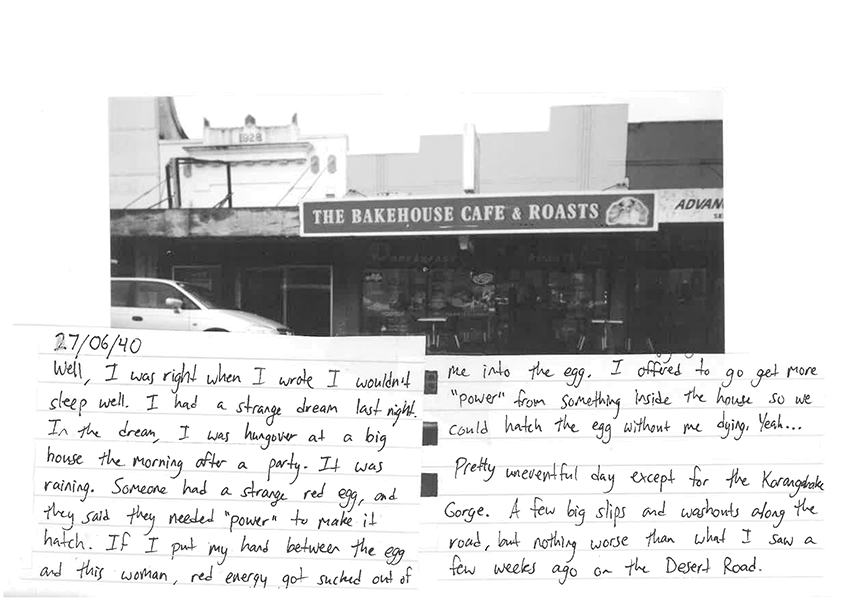 1928
THE BAKEHOUSE CAFE & ROASTS
ADVAN
SE
27/06/40
Well, I was right when I wrote I wouldn't
sleep well. I had a strange dream last night.
In the dream, I was hungover at a big
house the morning after a party. It was
raining. Someone had a strange red egg, and
they said they needed "power" to make it
hatch. If I put my hand between the egg
and this woman, red energy got sucked out of
me into the egg. I offered to go get more
"power" from something inside the house so we
could hatch the egg without me dying. Yeah...
Pretty uneventful day except for the Karangahake
Gorge. A few big slips and washouts along the
road, but nothing worse than what I saw a
few weeks ago on the Desert Road.